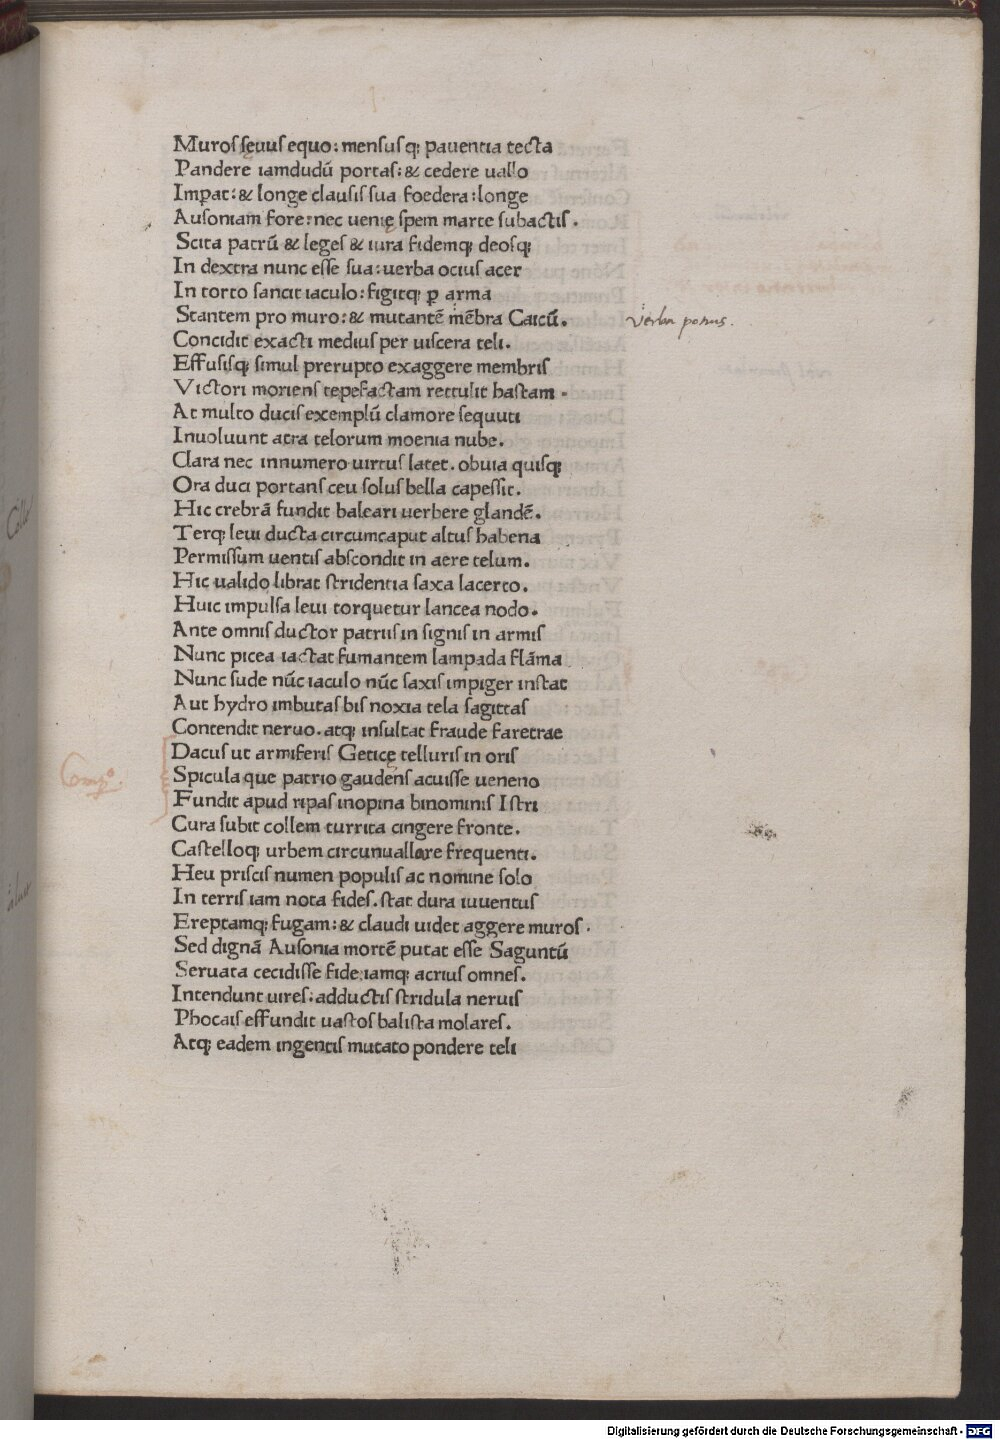 Muroſ ſęuuſ equo: menſuſ q; pauentia tecta
Pandere iamdudū portaſ: & cedere uallo
Imꝑat: & longe clauſiſ ſua foedera: longe
Auſoniam fore: nec uenię ſpem marte ſubactiſ.
Scita patrū & legeſ & iura fidemq; deoſq;
In dextra nunc eſſe ſua: uerba ociuſ acer
In torto ſancit iaculo: figitq; ꝑ arma
Stantem pro muro: & mutantē mēbra Caicū.
verba ponus.
Concidit exacti mediuſ per uiſcera teli.
Effuſiſq; ſimul prerupto exaggere membriſ
Victori morienſ tepefactam rettulit haſtam.
At multo duciſ exemplū clamore ſequuti
Inuoluunt atra telorum moenia nube.
Clara nec innumero uirtuſ latet. obuia quiſq;
Ora duci portanſ ceu ſoluſ bella capeſſit.
Hic crebrā fundit baleari uerbere glandē.
Terq; leui ducta circumcaput altuſ habena
Permiſſum uentiſ abſcondit in aere telum.
Hic ualido librat ſtridentia ſaxa lacerto.
Huic impulſa leui torquetur lancea nodo.
Ante omniſ ductor patriiſ in ſigniſ in armiſ
Nunc picea iactat fumantem lampada flāma
Nunc ſude nūc iaculo nūc ſaxiſ impiger inſtat
Aut hydro imbutaſ biſ noxia tela ſagittaſ
Contendit neruo. atq; inſultat fraude faretrae
Dacuſ ut armiferiſ Geticę telluriſ in oriſ
Comp.º
Spicula que patrio gaudenſ acuiſſe ueneno
Fundit apud ripaſ inopina binominiſ Iſtri
Cura ſubit collem turrita cingere fronte.
Caſtelloq; urbem circunuallare frequenti.
Heu priſciſ numen populiſ ac nomine ſolo
In terriſ iam nota fideſ. ſtat dura iuuentuſ
Ereptamq; fugam: & claudi uidet aggere muroſ.
Sed dignā Auſonia mortē putat eſſe Saguntū
Seruata cecidiſſe fide. iamq; acriuſ omneſ.
Intendunt uireſ: adductiſ ſtridula neruiſ
Phocaiſ effundit uaſtoſ baliſta molareſ.
Atq; eadem ingentiſ mutato pondere teli
Digitalisierung gefördert durch die Deutsche Forschungsgemeinschaft - DFG